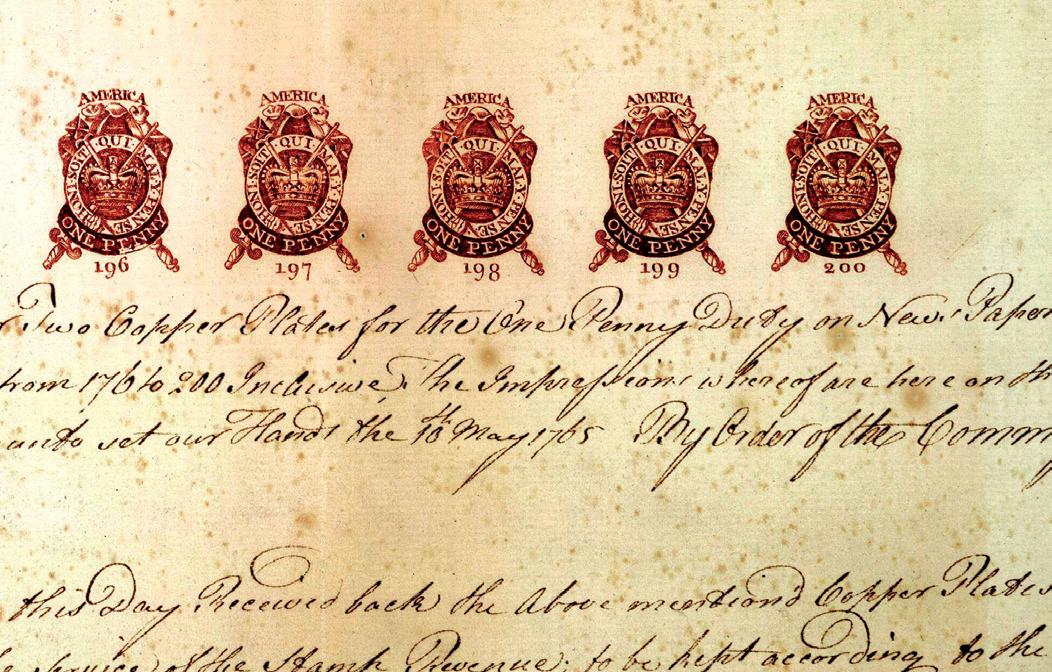 AMERICA AMERICA AMERICA AMERICA AMERICA
HONI · SOIT · QUI · MAL · Y · PENSE HONI · SOIT · QUI · MAL · Y · PENSE HONI · SOIT · QUI · MAL · Y · PENSE HONI · SOIT · QUI · MAL · Y · PENSE HONI · SOIT · QUI · MAL · Y · PENSE
ONE PENNY ONE PENNY ONE PENNY ONE PENNY ONE PENNY
196 197 198 199 200
Two Copper Plates for the One Penny Duty on News Paper
from 176 to 200 Inclusive, The Impressions whereof are here on th
unto set our Hands the May 1765 By Order of the Comm
this Day Received back the Above mentiond Copper Plates
Service of the Stamp Revenue; to be kept according to the